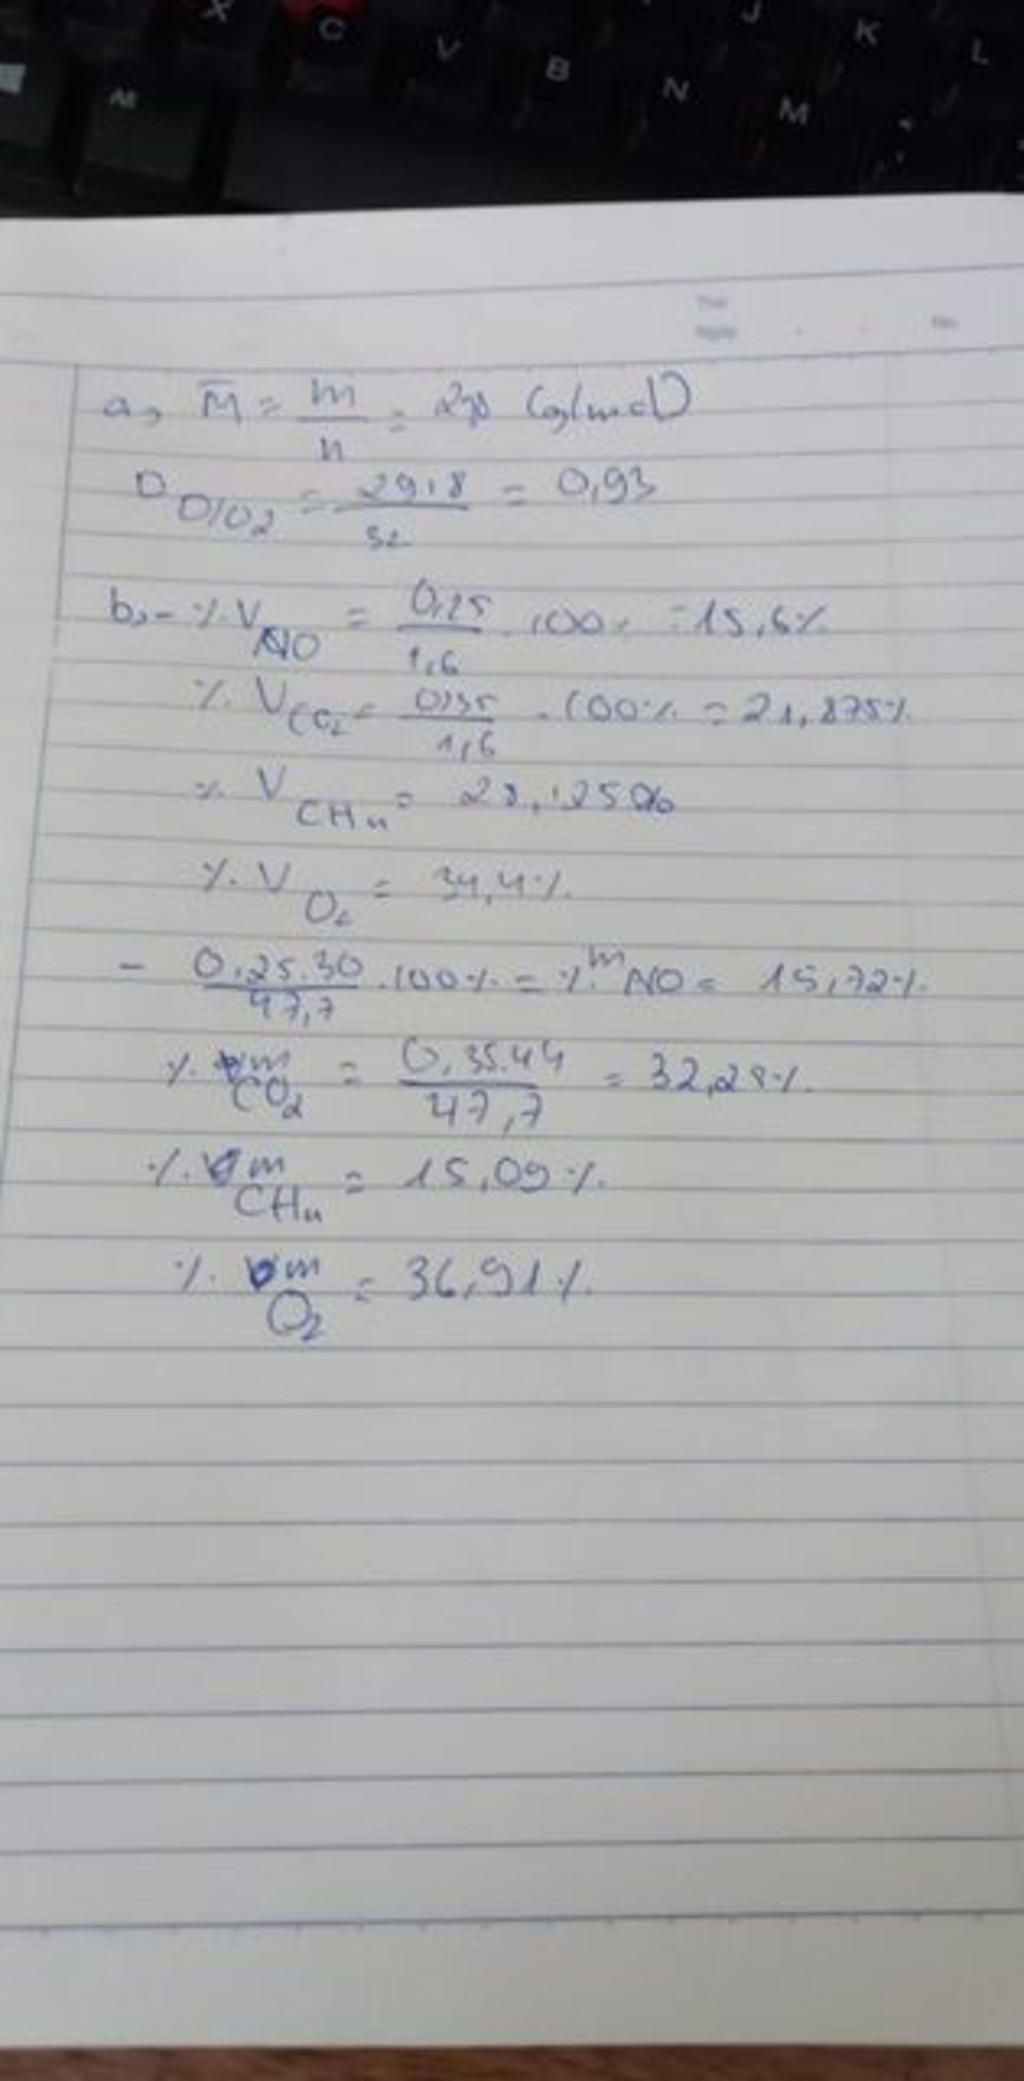 X C V B N M J K L
Alt
Thứ
Ngày No.
a, M̄ = m/n = 29,8 (g/mol)
D D/O2 = 29,8/32 = 0,93
b, - % V NO = 0,25/1,6 . 100% = 15,6%
% V CO2 = 0,35/1,6 . 100% = 21,875%
% V CH4 = 28,125%
% V O2 = 34,4%
- 0,25.30/47,7 .100% = % m NO = 15,72%
% m CO2 = 0,35.44/47,7 = 32,28%
% m CH4 = 15,09%
% m O2 = 36,91%